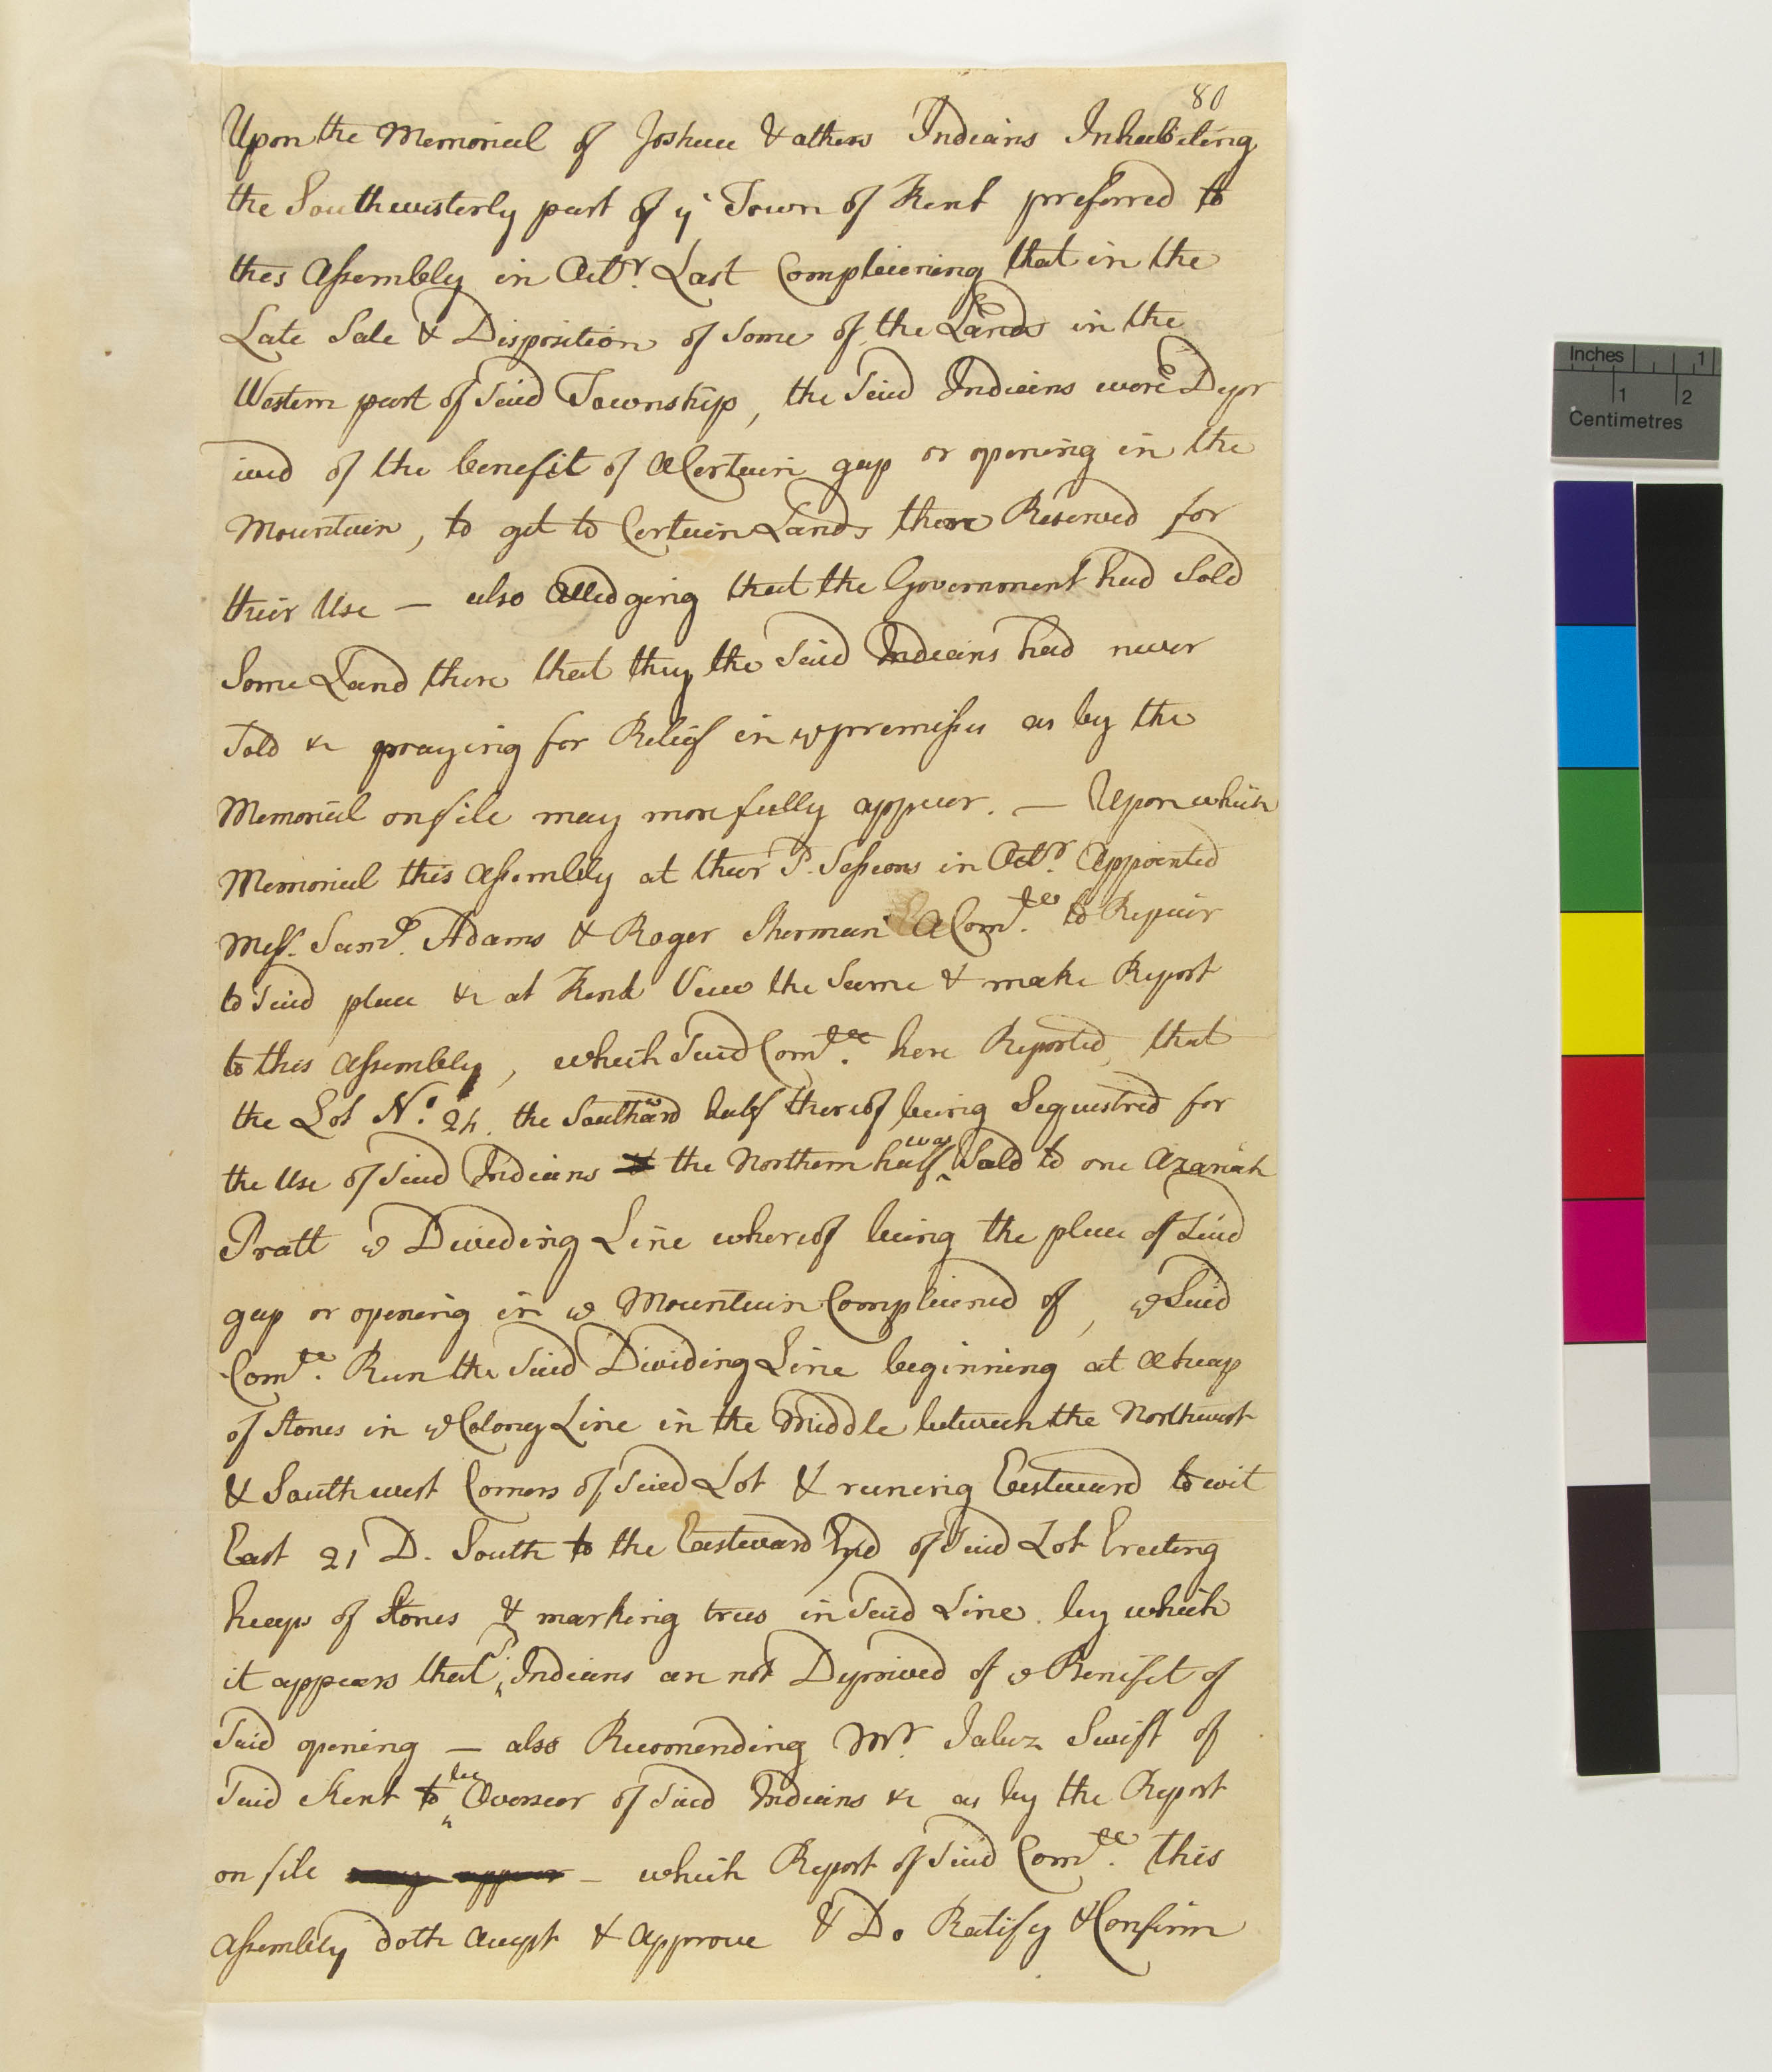 80
Upon the Memorial of Joshua & others Indians Inhabiting
the Southwesterly part of ye Town of Kent preferred to
this Assembly in Octr. Last Complaining that in the
Late Sale & Disposition of Some of the Lands in the
Western part of Said Township, the Said Indians were Depr
ived of the benefit of a Certain gap or opening in the
Mountain, to get to Certain Lands there Reserved for
their Use — also Alledging that the Government had Sold
Some Land there that they the Said Indians had never
Sold &c praying for Relief in ye premisses as by the
Memorial on file may more fully appear. — Upon which
Memorial this Assembly at their Sessions in Octr. Appointed
Mess. Saml. Adams & Roger Sherman a Comtee. to Repair
to Said place &c at Kent View the Same & make Report
to this Assembly, which Said Comtee. here Reported, that
the Lot No. 24. the Southward half thereof being Sequestred for
the Use of Said Indians & the Northern half was Sold to one Azariah
Pratt ye Dividing Line whereof being the place of Said
gap or opening in ye Mountain Complained of, ye Said
Comtee. Run the Said Dividing Line beginning at a heap
of Stones in ye Colony Line in the Middle between the Northwest
& Southwest Corners of Said Lot & runing Eastward to wit
East 21 D. South to the Eastward End of Said Lot Erecting
heaps of Stones & marking trees in Said Line. by which
it appears that Sd. Indians are not Deprived of ye Benifit of
Said opening — also Recomending Mr. Jabez Swift of
Said Kent to be Overseer of Said Indians &c as by the Report
on file may appear — which Report of Said Comtee. this
Assembly doth accept & approve & Do Ratify & Confirm
Inches 1
1 2
Centimetres